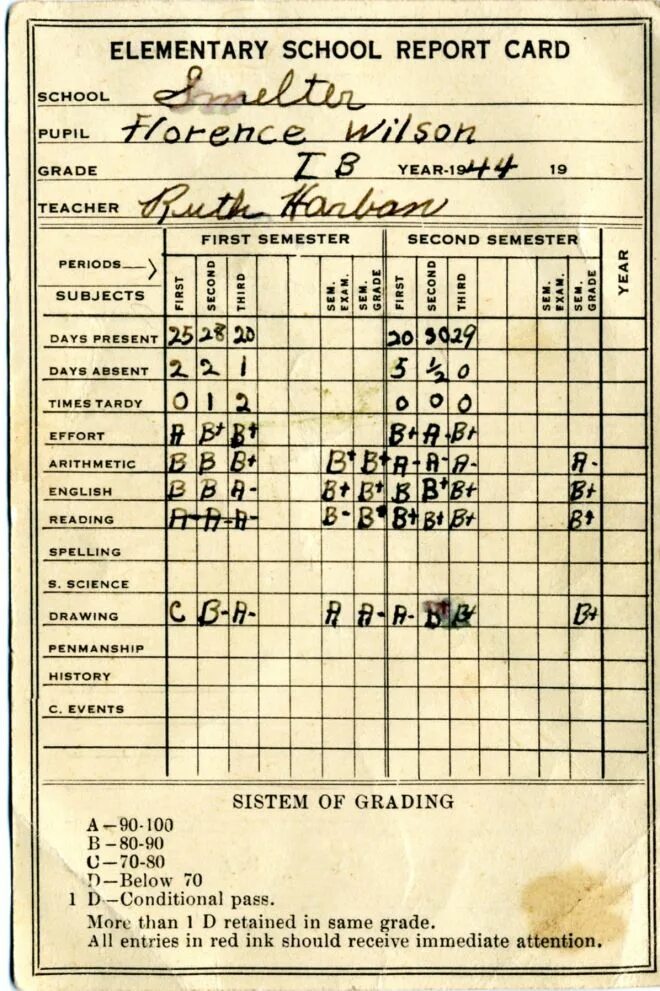 ELEMENTARY SCHOOL REPORT CARD
SCHOOL Smelter
PUPIL Florence Wilson
GRADE I B YEAR-1944 19
TEACHER Ruth Harban
FIRST SEMESTER SECOND SEMESTER YEAR
PERIODS
SUBJECTS FIRST SECOND THIRD SEM. EXAM. SEM. GRADE FIRST SECOND THIRD SEM. EXAM. SEM. GRADE
DAYS PRESENT 25 28 20 20 30 29
DAYS ABSENT 2 2 1 5 ½ 0
TIMES TARDY 0 1 2 0 0 0
EFFORT A B+ B+ B+ A- B+
ARITHMETIC B B B+ B+ B+ A- A- A- A-
ENGLISH B B A- B+ B+ B B+ B+ B+
READING A- A- A- B- B+ B+ B+ B+ B+
SPELLING
S. SCIENCE
DRAWING C B- A- A A- A- B+ B+ B+
PENMANSHIP
HISTORY
C. EVENTS
SISTEM OF GRADING
A—90-100
B—80-90
C—70-80
D—Below 70
1 D—Conditional pass.
More than 1 D retained in same grade.
All entries in red ink should receive immediate attention.